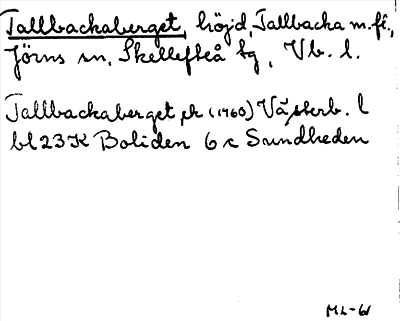 Tallbackaberget, höjd, Tallbacka m.fl.,
Jörns sn, Skellefteå tg, Vb. l.
Tallbackaberget, ek (1960) Västerb. l
bl 23 K Boliden 6 c Sandheden
ML-61